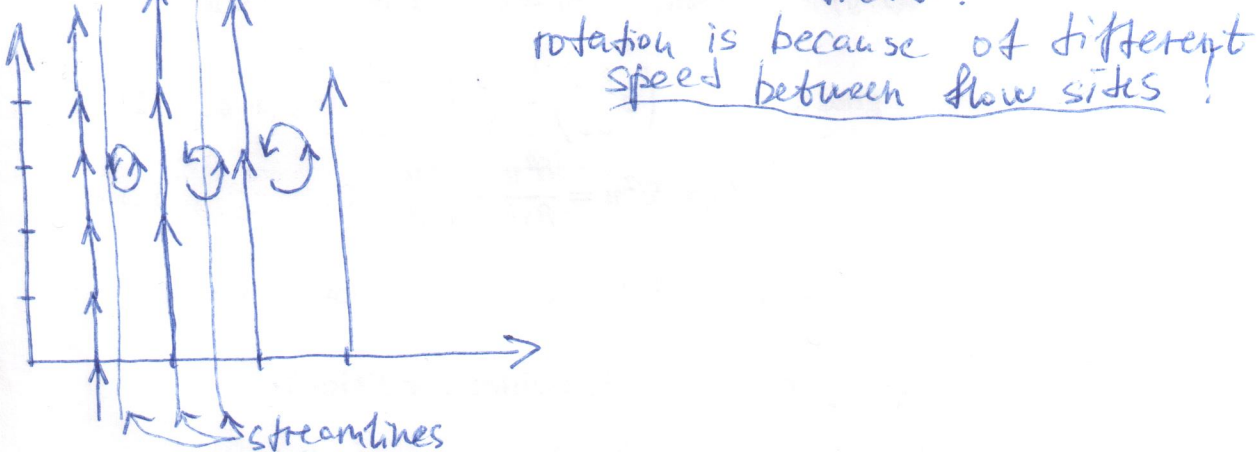 rotation is because of different
speed between flow sides!
streamlines